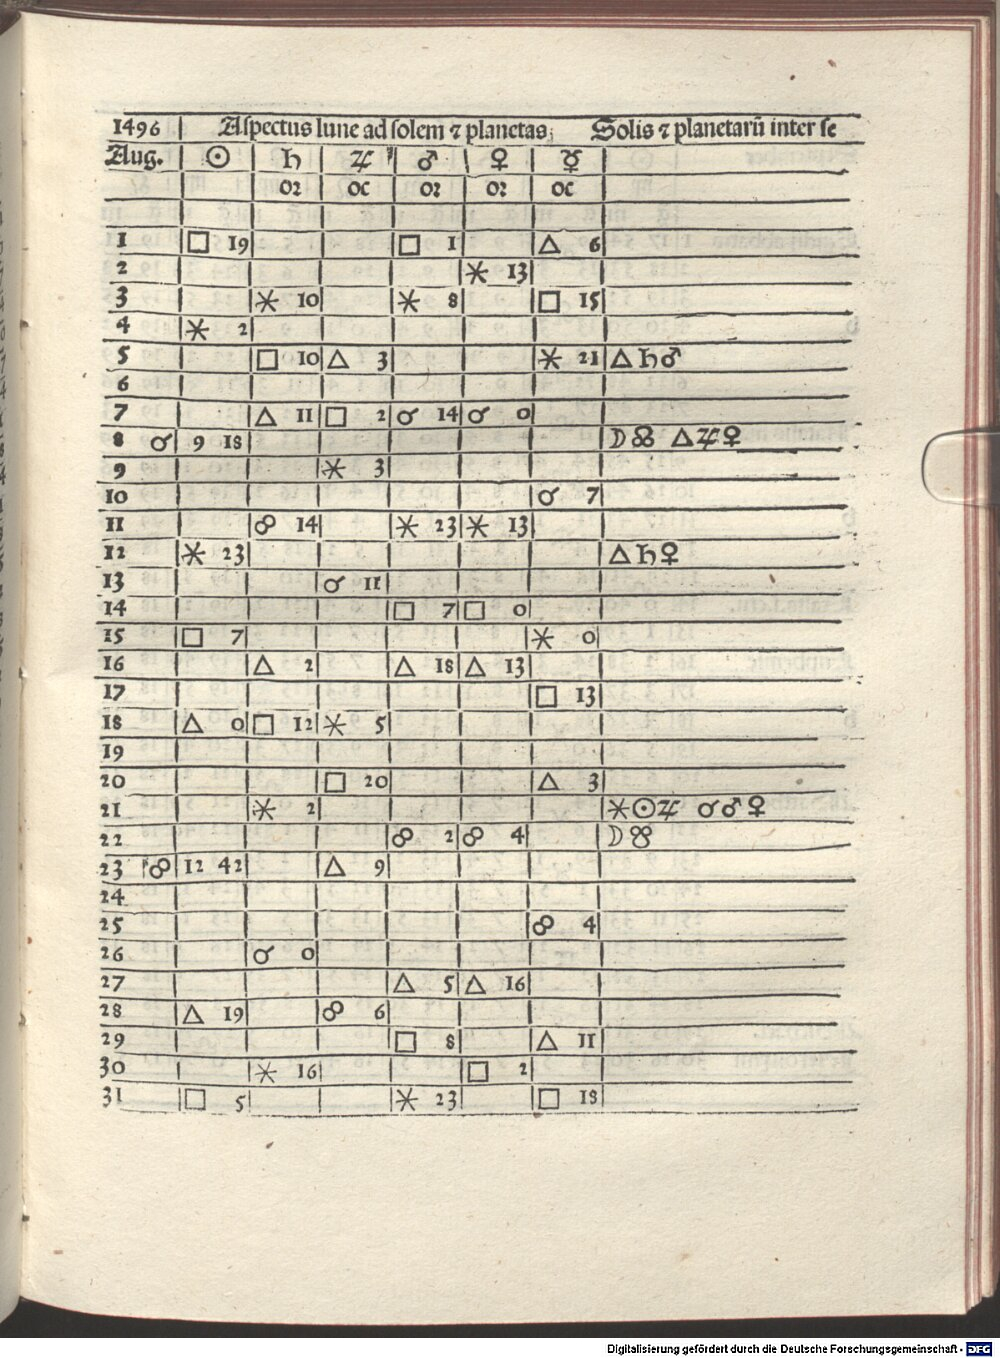 1496 Aspectus lune ad solem ⁊ planetas; Solis ⁊ planetarū inter se
Aug. ☉ ♄ ♃ ♂ ♀ ☿
oꝛ oc oꝛ oꝛ oc
1 □ 19 □ 1 △ 6
2 ⚹ 13
3 ⚹ 10 ⚹ 8 □ 15
4 ⚹ 2
5 □ 10 △ 3 ⚹ 21 △ ♄ ♂
6
7 △ 11 □ 2 ☌ 14 ☌ 0
8 ☌ 9 18 ☽ ☊ △ ♃ ♀
9 ⚹ 3
10 ☌ 7
11 ☍ 14 ⚹ 23 ⚹ 13
12 ⚹ 23 △ ♄ ♀
13 ☌ 11
14 □ 7 □ 0
15 □ 7 ⚹ 0
16 △ 2 △ 18 △ 13
17 □ 13
18 △ 0 □ 12 ⚹ 5
19
20 □ 20 △ 3
21 ⚹ 2 ⚹ ☉ ♃ ☌ ♂ ♀
22 ☍ 2 ☍ 4 ☽ ☋
23 ☍ 12 42 △ 9
24
25 ☍ 4
26 ☌ 0
27 △ 5 △ 16
28 △ 19 ☍ 6
29 □ 8 △ 11
30 ⚹ 16 □ 2
31 □ 5 ⚹ 23 □ 18
Digitalisierung gefördert durch die Deutsche Forschungsgemeinschaft - DFG